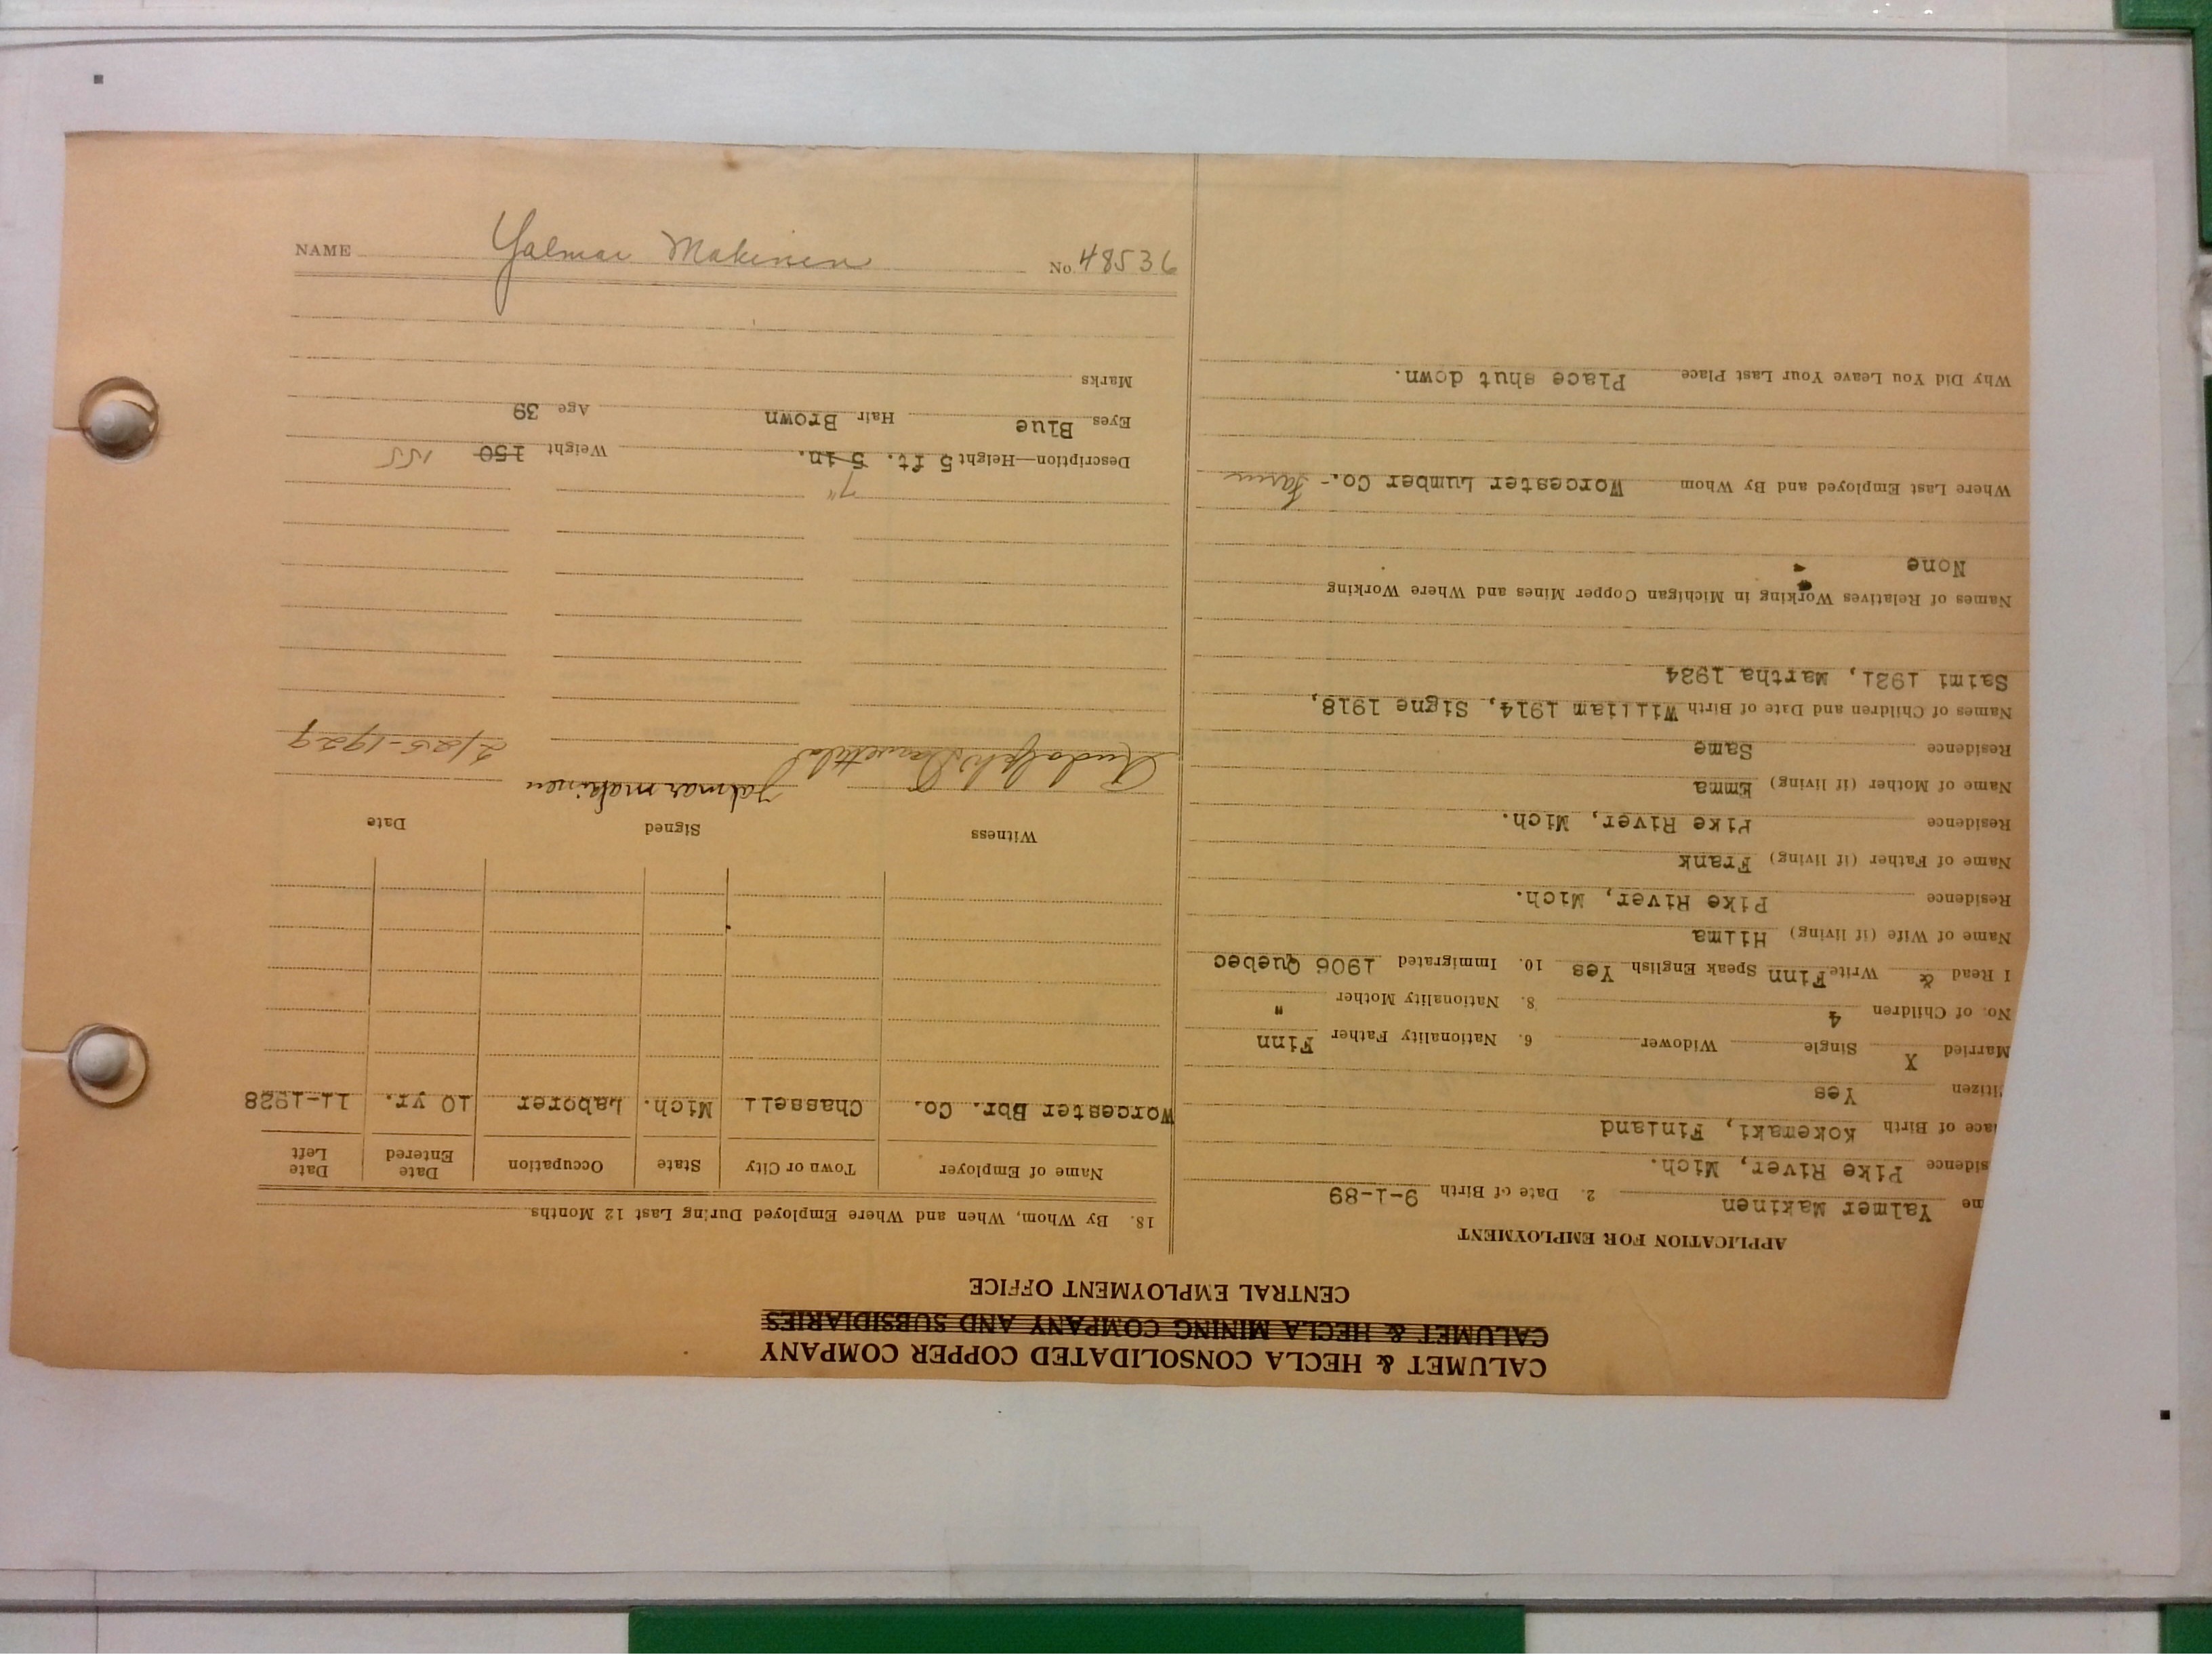 CALUMET & HECLA CONSOLIDATED COPPER COMPANY
CALUMET & HECLA MINING COMPANY AND SUBSIDIARIES
CENTRAL EMPLOYMENT OFFICE
APPLICATION FOR EMPLOYMENT
me Yalmer Makinen 2. Date of Birth 9-1-89
sidence Pike River, Mich.
ace of Birth Kokemaki, Finland
itizen Yes
Married X Single Widower 6. Nationality Father Finn
No. of Children 4 8. Nationality Mother "
I Read & Write Finn Speak English Yes 10. Immigrated 1906 Quebec
Name of Wife (if living) Hilma
Residence Pike River, Mich.
Name of Father (if living) Frank
Residence Pike River, Mich.
Name of Mother (if living) Emma
Residence Same
Names of Children and Date of Birth William 1914, Signe 1918,
Saimi 1921, Martha 1924
Names of Relatives Working in Michigan Copper Mines and Where Working
None
Where Last Employed and By Whom Worcester Lumber Co.- Farm
Why Did You Leave Your Last Place Place shut down.
18. By Whom, When and Where Employed During Last 12 Months
Name of Employer Town or City State Occupation Date Entered Date Left
Worcester Bbr. Co. Chassell Mich. Laborer 10 yr. 11-1928
Witness Signed Date
Rudolph Jalmar Makinen 2/25-1929
7"
Description—Height 5 ft. 5 in. Weight 150 155
Eyes Blue Hair Brown Age 39
Marks
NAME Yalmar Makinen No. 48536